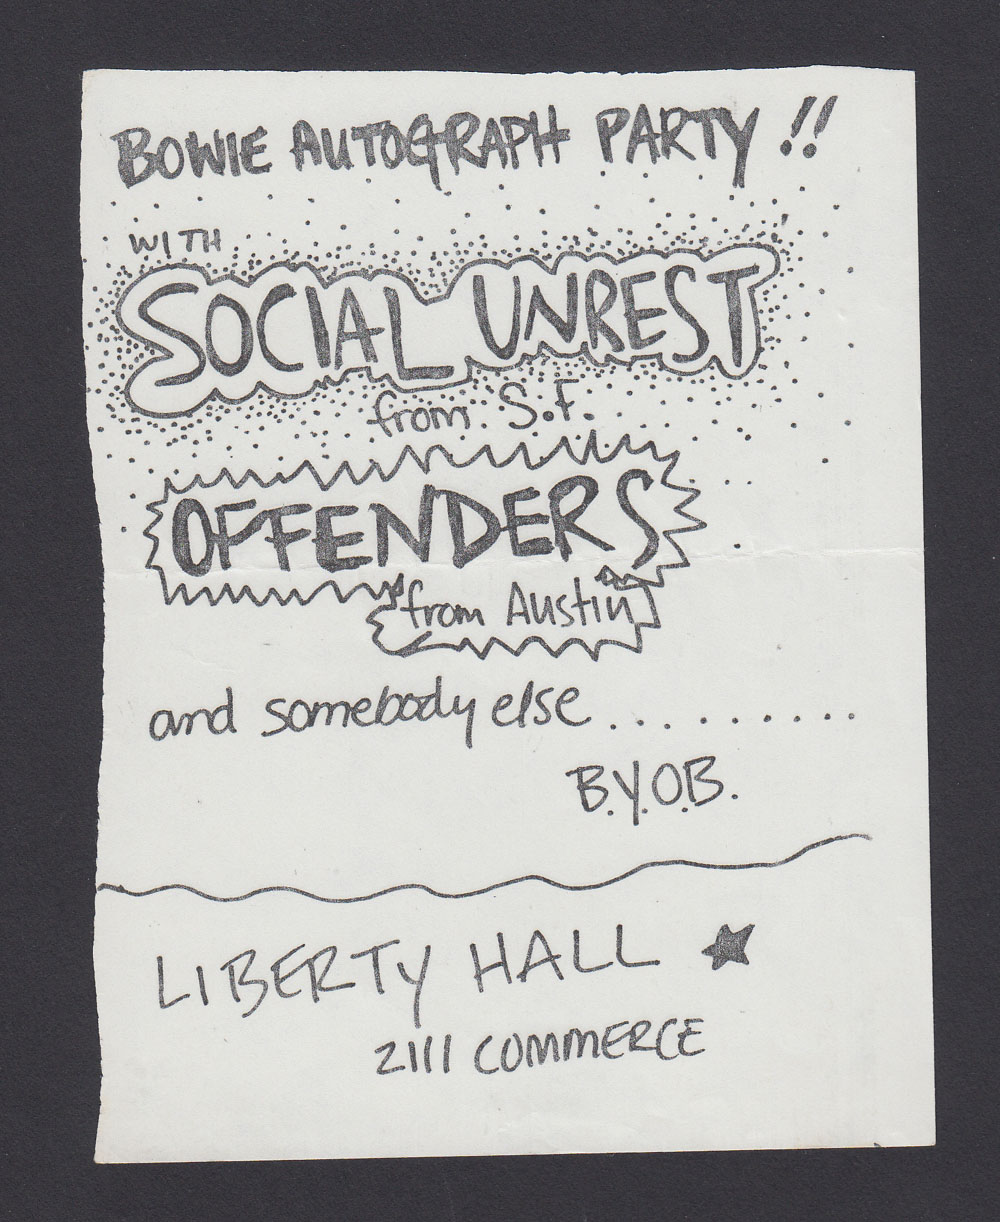 BOWIE AUTOGRAPH PARTY !!
WITH
SOCIAL UNREST
from S.F.
OFFENDERS
from Austin
and somebody else..........
B.Y.O.B.
LIBERTY HALL ★
2111 COMMERCE